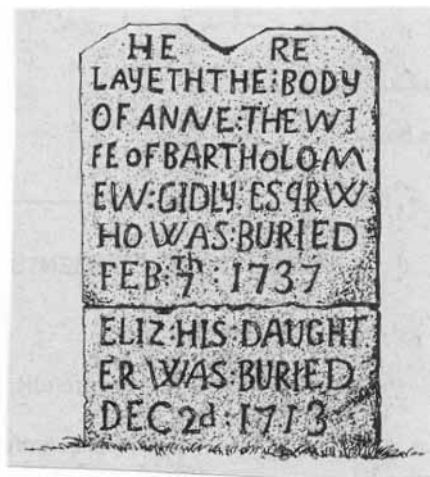 HE RE
LAYETHTHE:BODY
OF ANNE:THE WI
FE OF BARTHOLOM
EW:GIDLY:ESQR W
HO WAS:BURIED
FEB:7th:1737
ELIZ:HIS:DAUGHT
ER WAS:BURIED
DEC 2d:1713